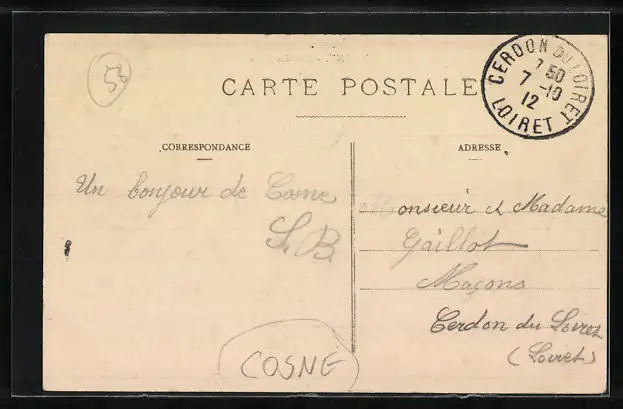 58
CARTE POSTALE
CERDON DU LOIRET
7 50
7 -10
12
LOIRET
CORRESPONDANCE
ADRESSE
Un bonjour de Cosne
S. B.
Monsieur & Madame
Gaillot
Maçons
Cerdon du Loiret
(Loiret)
COSNE